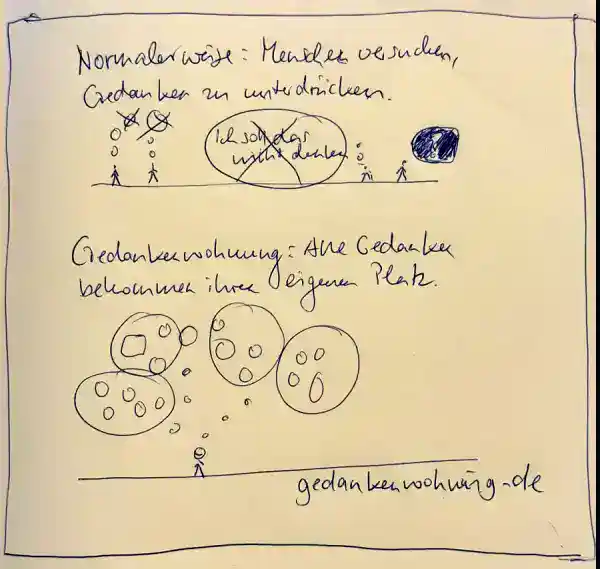 Normalerweise: Menschen versuchen,
Gedanken zu unterdrücken.
Ich soll das
nicht denken
Gedankenwohnung: Alle Gedanken
bekommen ihren eigenen Platz.
gedankenwohnung.de